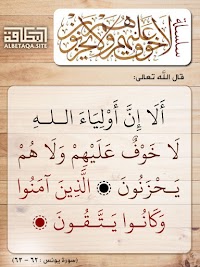 سلسلة
لا خوف عليهم ولا هم يحزنون
البطاقة
ALBETAQA.SITE
قال الله تعالى:
أَلَا إِنَّ أَوْلِيَاءَ اللَّهِ
لَا خَوْفٌ عَلَيْهِمْ وَلَا هُمْ
يَحْزَنُونَ ۝ الَّذِينَ آمَنُوا
وَكَانُوا يَتَّقُونَ ۝
(سورة يونس : ٦٢ - ٦٣)